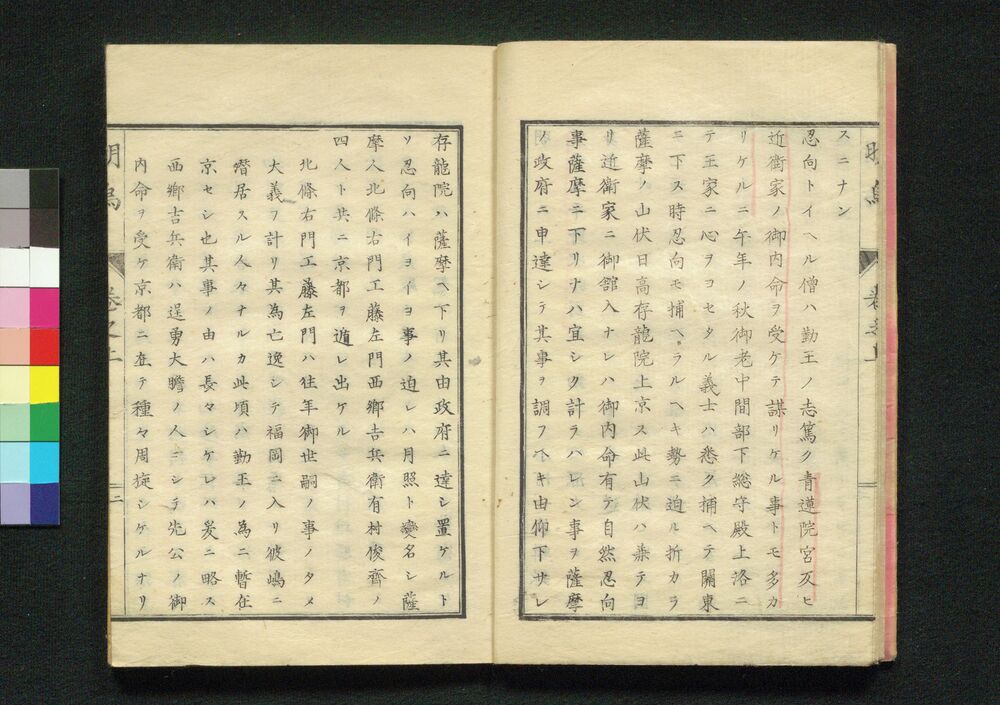 スニナン
忍向トイヘル僧ハ勤王ノ志篤ク青蓮院宮及ヒ
近衛家ノ御内命ヲ受ケテ謀リケル事トモ多カ
リケルニ午年ノ秋御老中間部下総守殿上洛ニ
テ王家ニ心ヲヨセタル義士ハ悉ク捕ヘテ関東
ニ下ス時忍向モ捕ヘラルヘキ勢ニ迫ル折カラ
薩摩ノ山伏日高存龍院上京ス此山伏ハ兼テヨ
リ近衛家ニ御館入ナレハ御内命有テ自然忍向
事薩摩ニ下リナハ宜シク計ラハレン事ヲ薩摩
ノ政府ニ申達シテ其事ヲ調フヘキ由仰下サレ
存龍院ハ薩摩ヘ下リ其由政府ニ達シ置ケルト
ソ忍向ハイヨイヨ事ノ迫レハ月照ト変名シ薩
摩人北條右門工藤左門西郷吉兵衛有村俊齋ノ
四人ト共ニ京都ヲ遁レ出ケル
北條右門工藤左門ハ往年御世嗣ノ事ノタメ
大義ヲ計リ其為亡逸シテ福岡ニ入リ彼嶋ニ
潜居スル人々ナルカ此頃ハ勤王ノ為ニ暫在
京セシ也其事ノ由ハ長々シケレハ爰ニ略ス
西郷吉兵衛ハ逞勇大膽ノ人ニシテ先公ノ御
内命ヲ受ケ京都ニ在テ種々周旋シケルナリ
明烏
巻之上
二